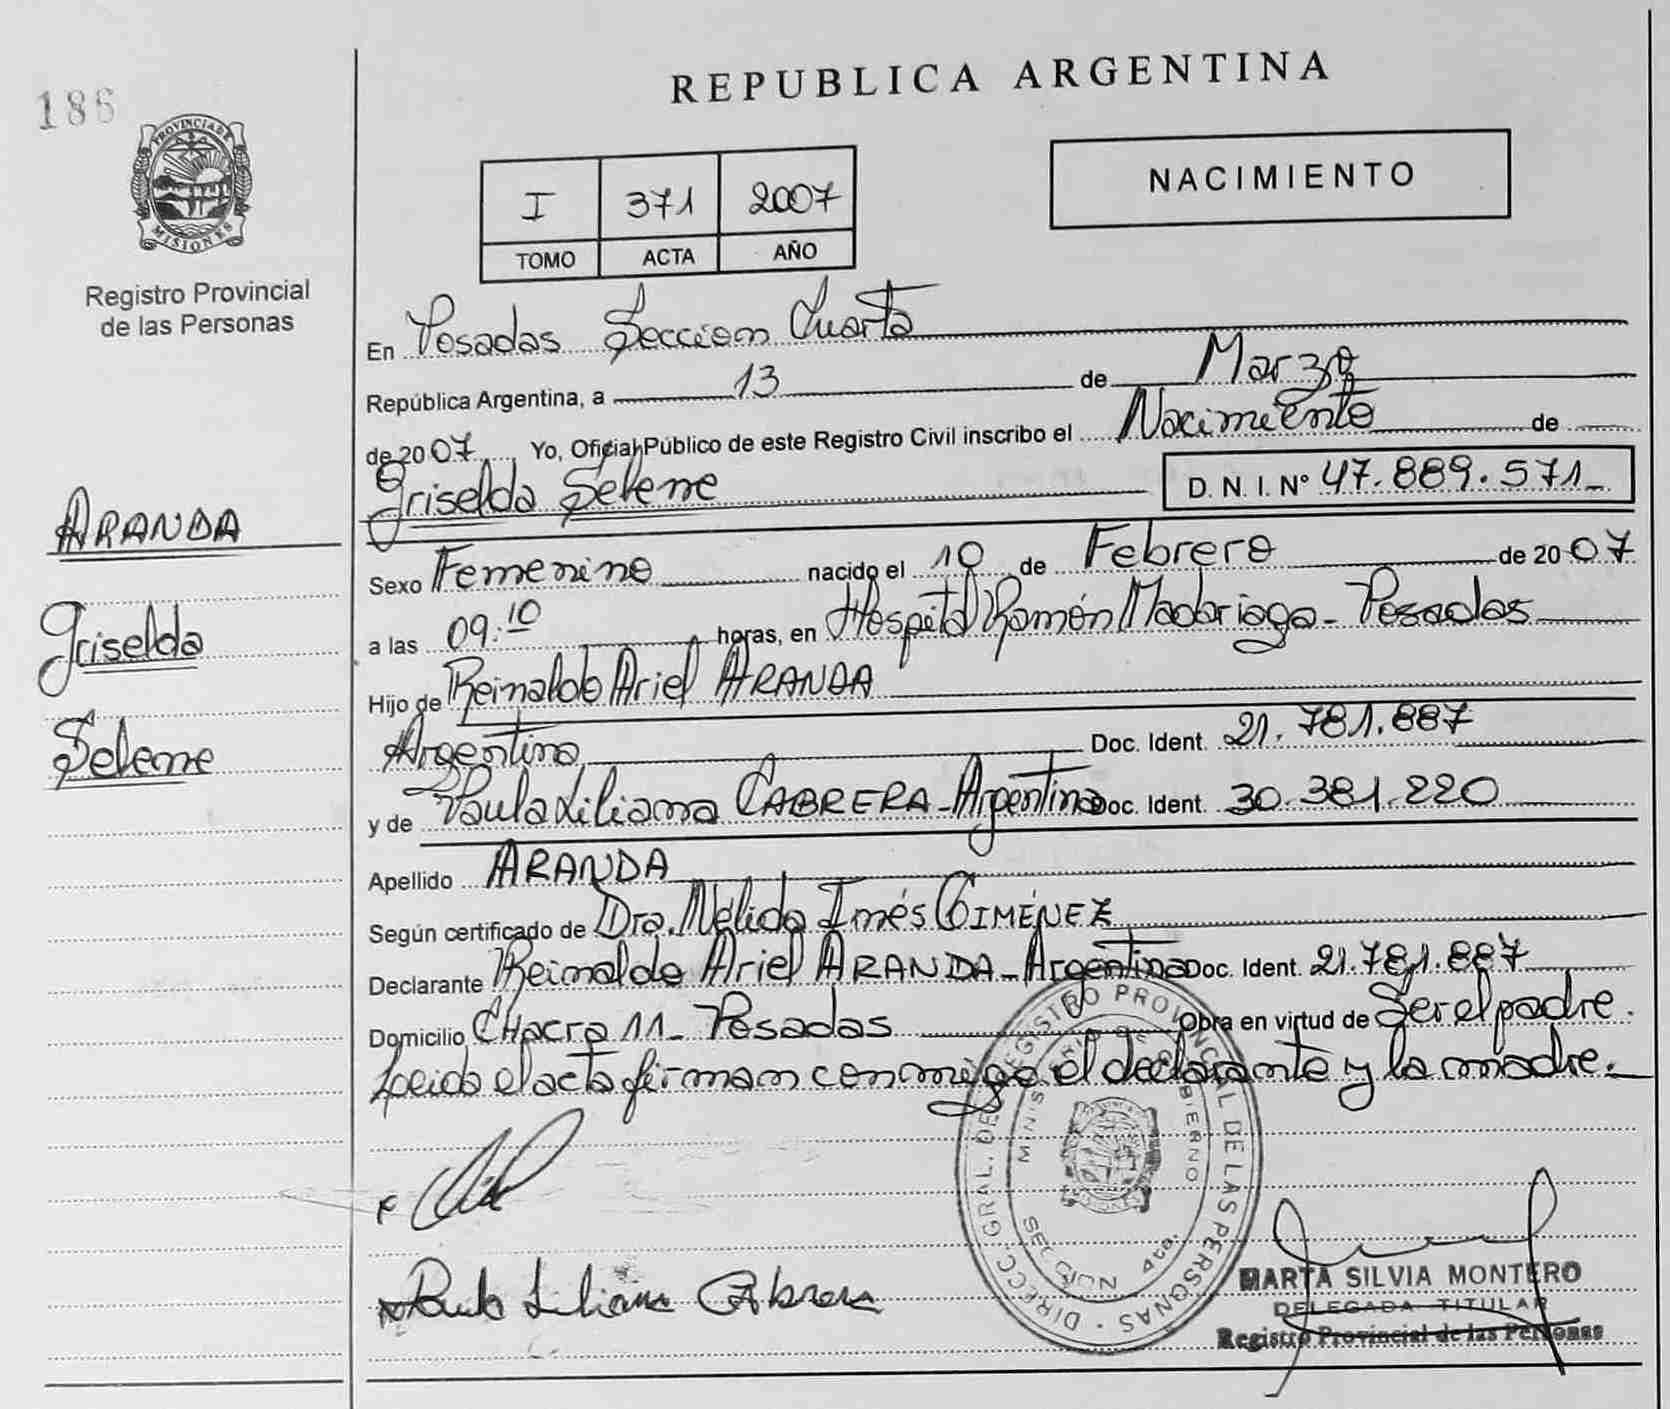 186
REPUBLICA ARGENTINA
PROVINCIA DE
MISIONES
Registro Provincial
de las Personas
I 371 2007
TOMO ACTA AÑO
NACIMIENTO
En Posadas Seccion Cuarta
República Argentina, a 13 de Marzo
de 2007 Yo, Oficial Público de este Registro Civil inscribo el Nacimiento de
Griselda Selene D. N. I. Nº 47.889.571
ARANDA
Griselda
Selene
Sexo Femenino nacido el 10 de Febrero de 2007
a las 09:10 horas, en Hospital Ramón Madariaga - Posadas
Hijo de Reinaldo Ariel ARANDA
Argentino Doc. Ident. 21.781.887
y de Paula Liliana CABRERA - Argentina Doc. Ident. 30.381.220
Apellido ARANDA
Según certificado de Dra. Nélida Inés GIMÉNEZ
Declarante Reinaldo Ariel ARANDA - Argentino Doc. Ident. 21.781.887
Domicilio CHacra 11 - Posadas Obra en virtud de Ser el padre.
Leida el acta firman conmigo el declarante y la madre.
Paula Liliana Cabrera
DIRECC. GRAL. DE REGISTRO PROVINCIAL DE LAS PERSONAS
MINISTERIO DE GOBIERNO
SECCION 4ta.
MARTA SILVIA MONTERO
DELEGADA TITULAR
Registro Provincial de las Personas